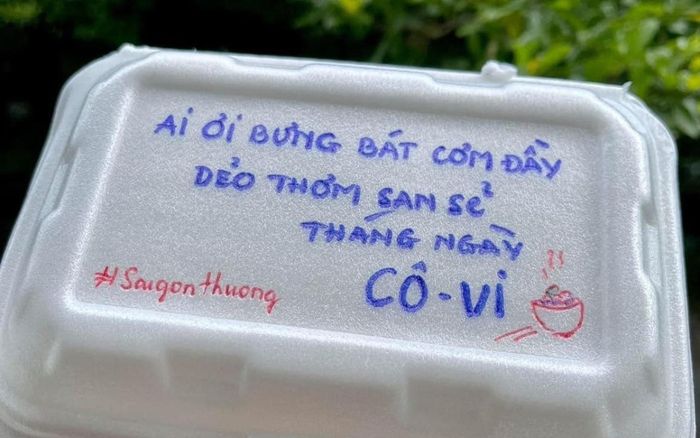 AI ƠI BƯNG BÁT CƠM ĐẦY
DẺO THƠM SAN SẺ
THÁNG NGÀY
CÔ-VI
#Saigonthuong